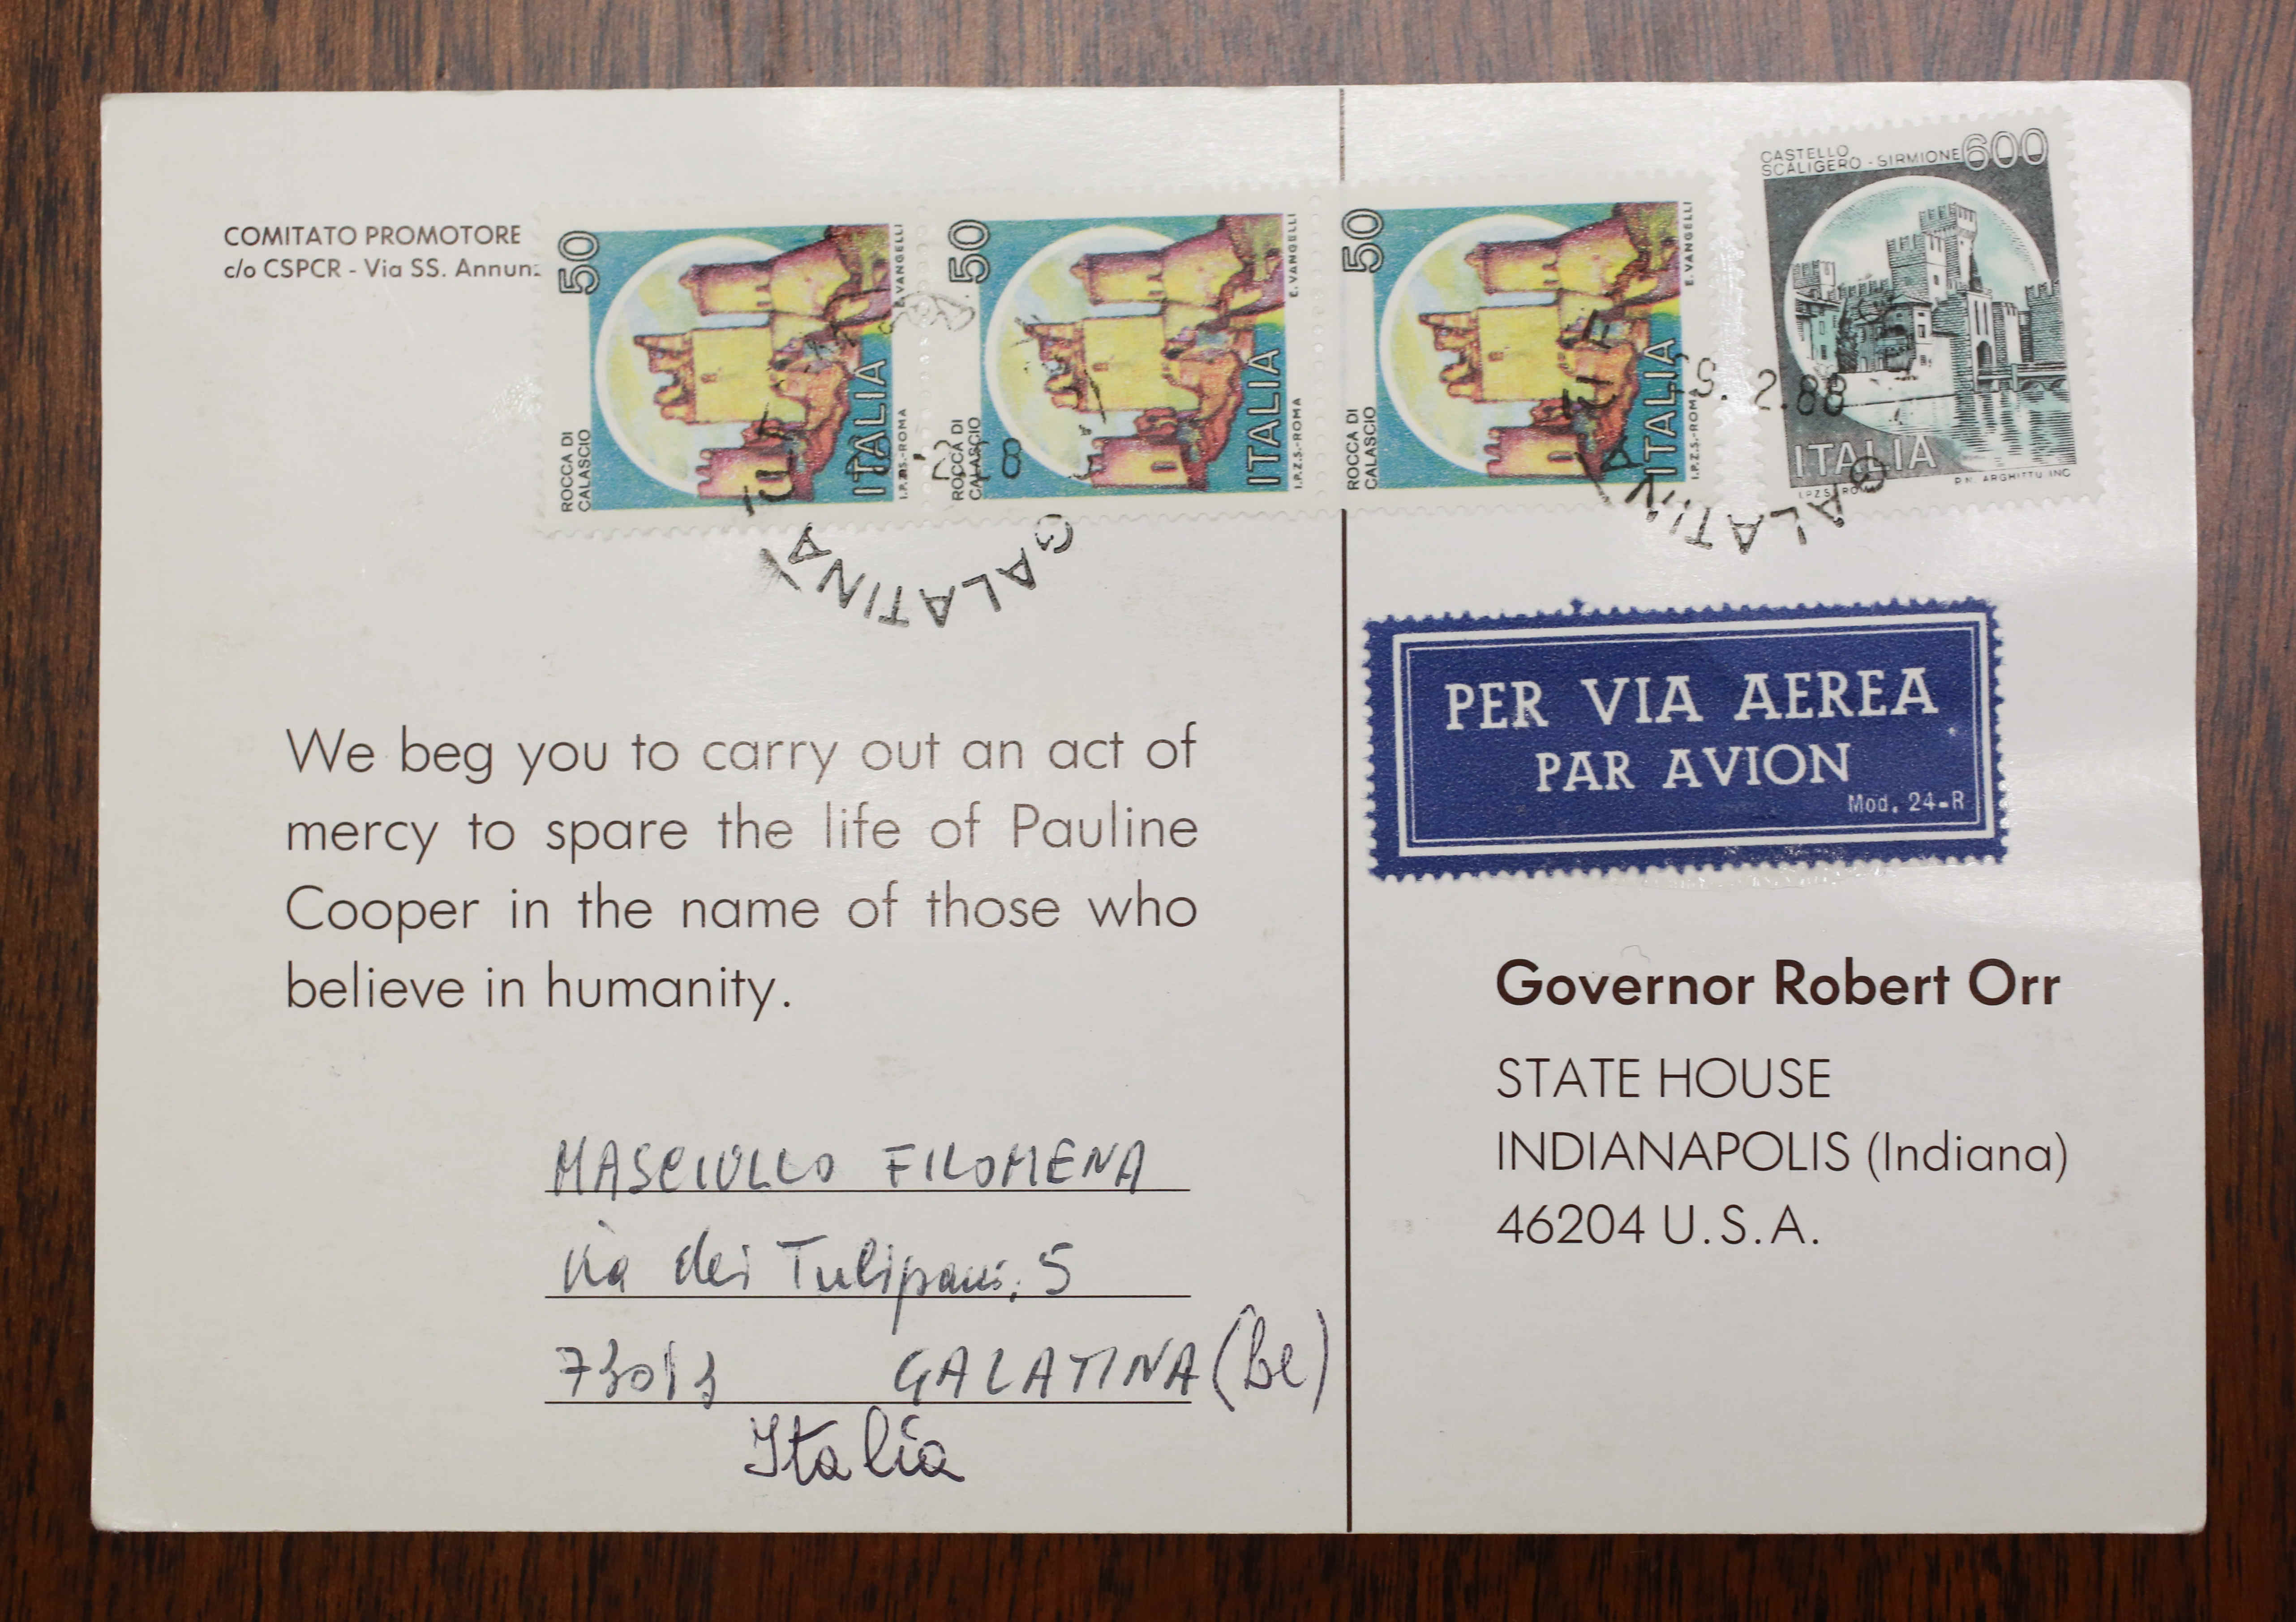 COMITATO PROMOTORE
c/o CSPCR - Via SS. Annunz
50
ROCCA DI
CALASCIO
ITALIA
E. VANGELLI
I.P.Z.S.-ROMA
50
ROCCA DI
CALASCIO
ITALIA
E. VANGELLI
I.P.Z.S.-ROMA
50
ROCCA DI
CALASCIO
ITALIA
E. VANGELLI
I.P.Z.S.-ROMA
CASTELLO
SCALIGERO - SIRMIONE 600
ITALIA
I.P.Z.S. ROMA
P.N. ARGHITTU INC
2.88
GALATINA
GALATINA
PER VIA AEREA
PAR AVION
Mod. 24-R
We beg you to carry out an act of
mercy to spare the life of Pauline
Cooper in the name of those who
believe in humanity.
MASCIULLO FILOMENA
via dei Tulipani, 5
73013 GALATINA (Le)
Italia
Governor Robert Orr
STATE HOUSE
INDIANAPOLIS (Indiana)
46204 U.S.A.